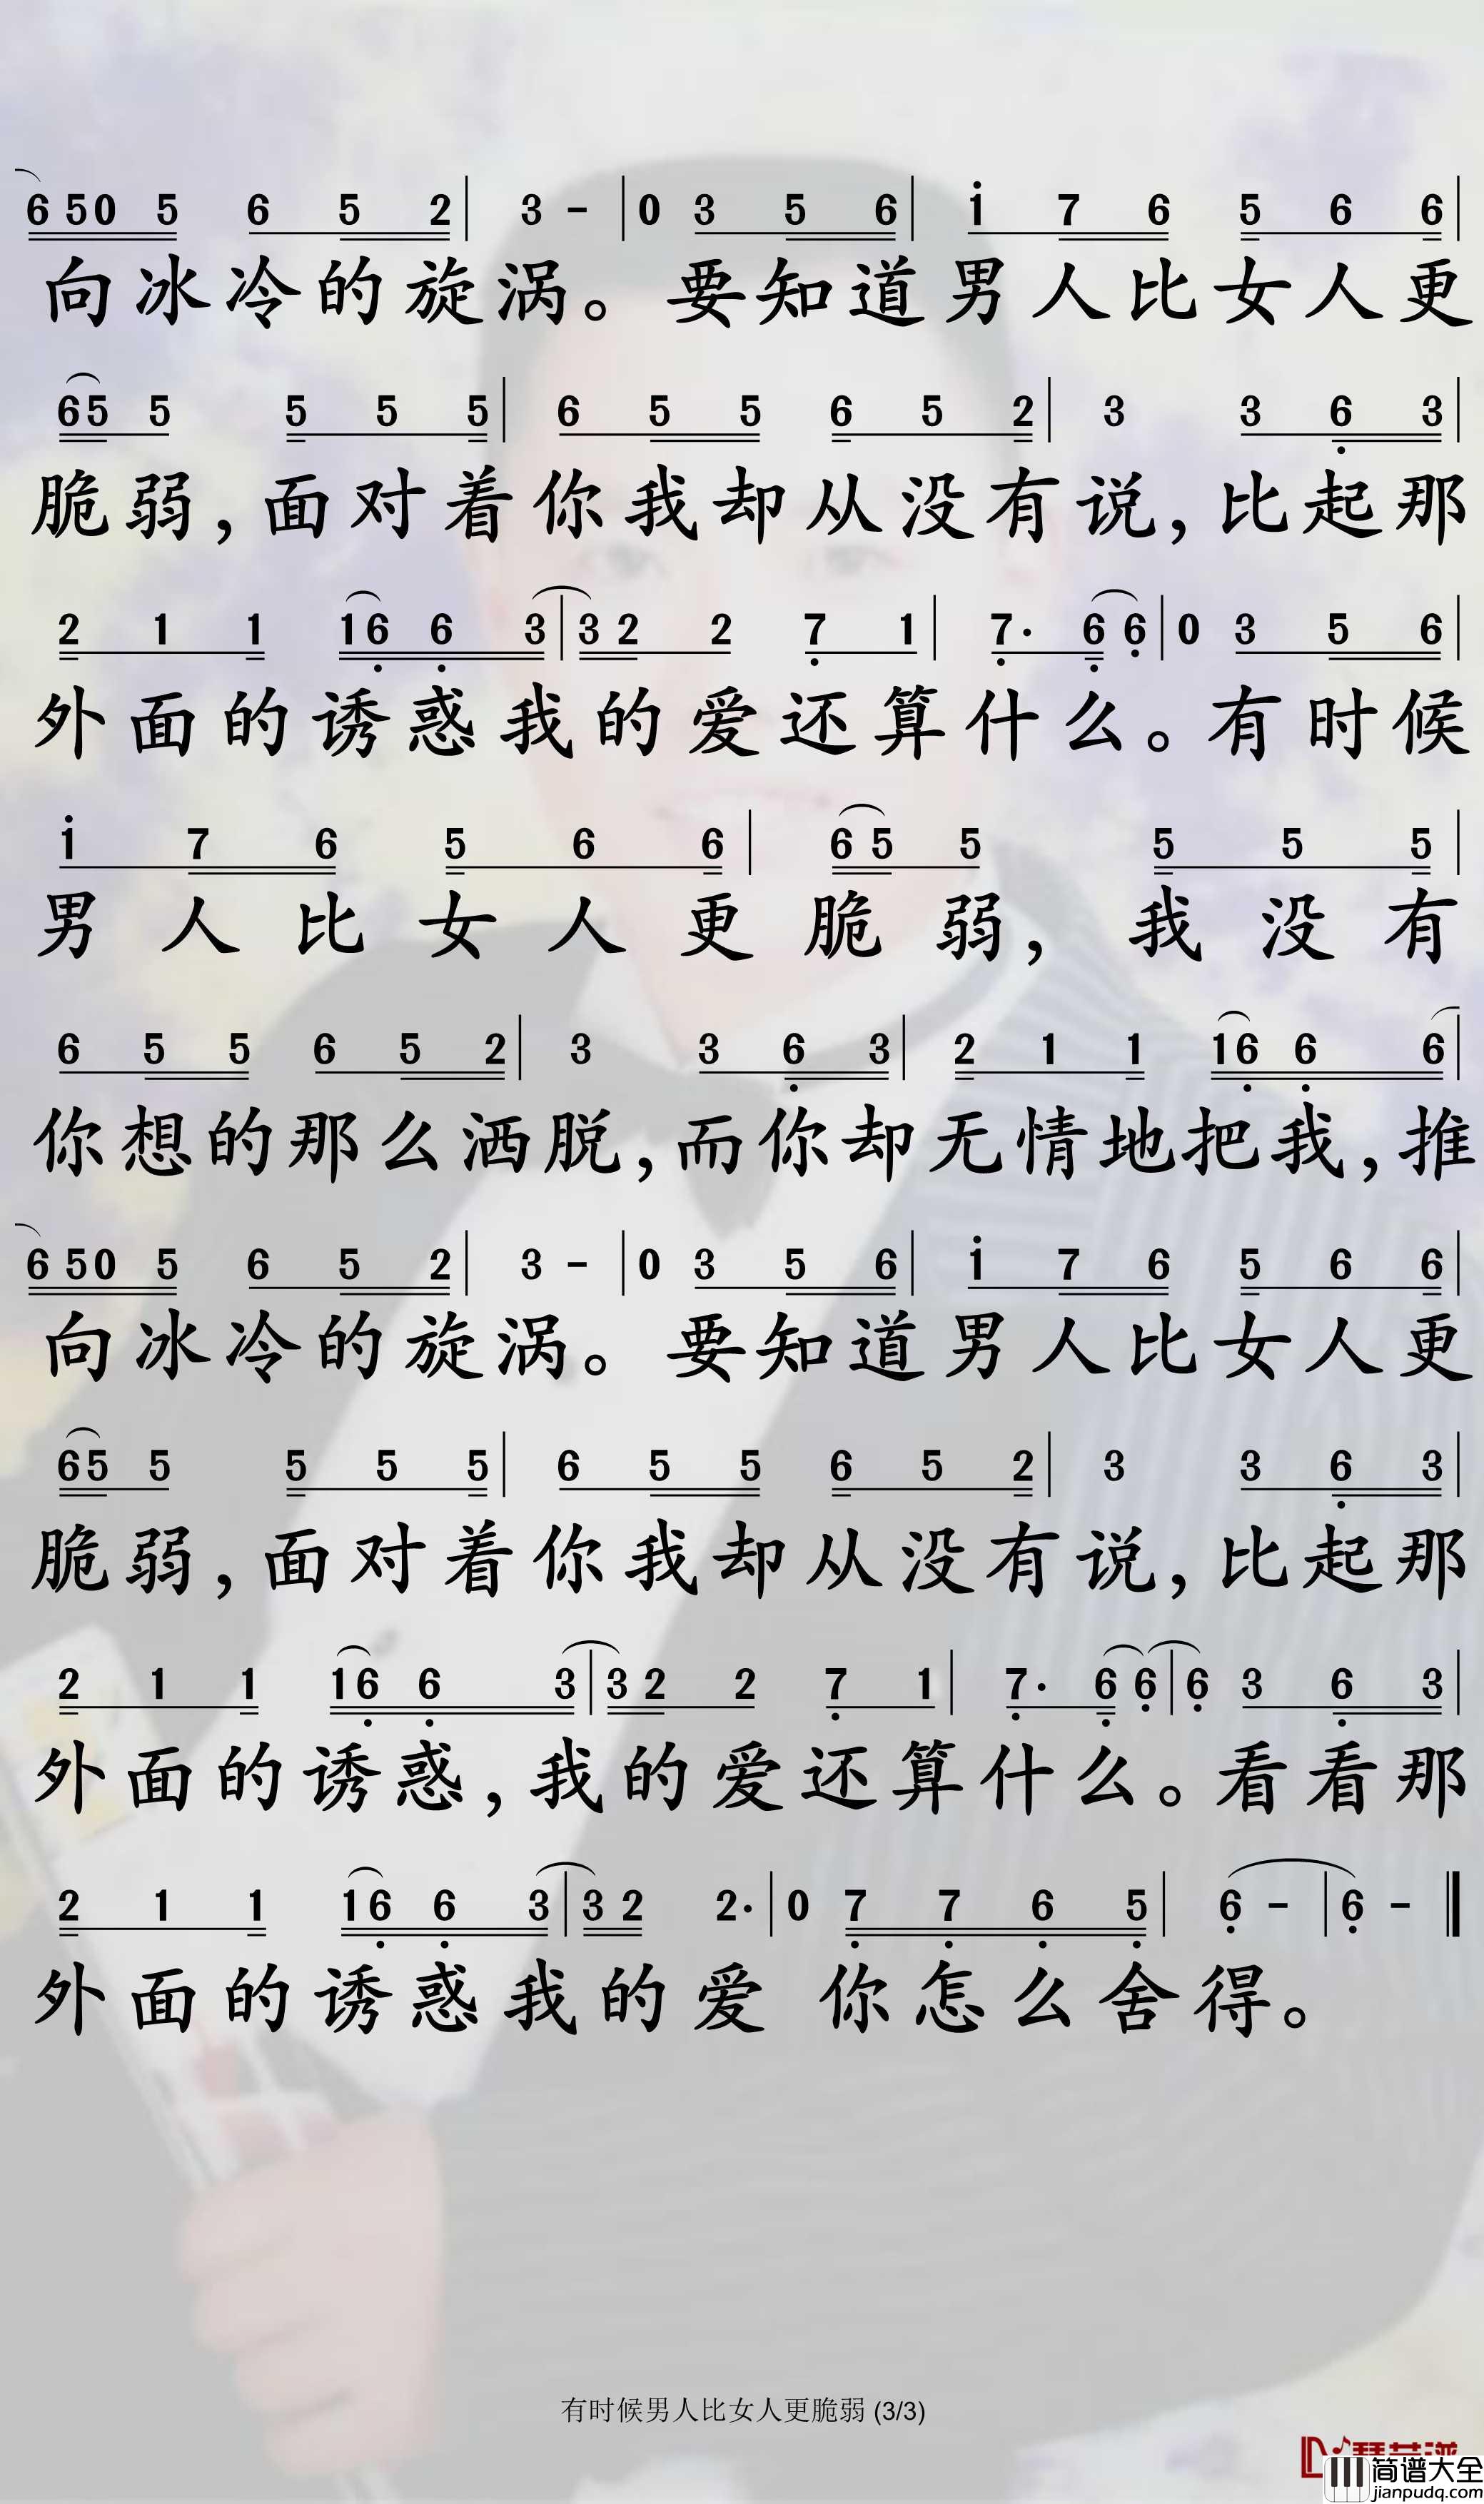 6 5 0 5 6 5 2 | 3 - | 0 3 5 6 | i 7 6 5 6 6 |
向冰冷的旋涡。要知道男人比女人更
6 5 5 5 5 5 | 6 5 5 6 5 2 | 3 3 6 3 |
脆弱,面对着你我却从没有说,比起那
2 1 1 1 6 6 3 | 3 2 2 7 1 | 7· 6 6 | 0 3 5 6 |
外面的诱惑我的爱还算什么。有时候
i 7 6 5 6 6 | 6 5 5 5 5 5 |
男人比女人更脆弱,我没有
6 5 5 6 5 2 | 3 3 6 3 | 2 1 1 1 6 6 6 |
你想的那么洒脱,而你却无情地把我,推
6 5 0 5 6 5 2 | 3 - | 0 3 5 6 | i 7 6 5 6 6 |
向冰冷的旋涡。要知道男人比女人更
6 5 5 5 5 5 | 6 5 5 6 5 2 | 3 3 6 3 |
脆弱,面对着你我却从没有说,比起那
2 1 1 1 6 6 3 | 3 2 2 7 1 | 7· 6 6 | 6 3 6 3 |
外面的诱惑,我的爱还算什么。看看那
2 1 1 1 6 6 3 | 3 2 2· | 0 7 7 6 5 | 6 - | 6 - ‖
外面的诱惑我的爱 你怎么舍得。
有时候男人比女人更脆弱 (3/3)
简谱大全
jianpudq.com